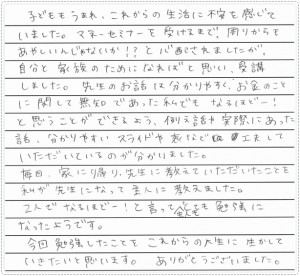 子どももうまれ、これからの生活に不安を感じて
いました。マネーセミナーを受けるまで、周りからも
あやしいんじゃないか!?と心配されましたが、
自分と家族のためになればと思い、受講
しました。先生のお話は分かりやすく、お金のこと
に関して無知であった私でも なるほどー!
と思うことができるよう、例え話や実際にあった
話、分かりやすいスライドや表など 工夫して
いただいているのが分かりました。
毎回、家に帰り、先生に教えていただいたことを
私が先生になって主人に教えました。
2人でなるほどー!と言って とても勉強に
なったようです。
今回勉強したことを これからの人生に生かして
いきたいと思います。ありがとうございました。